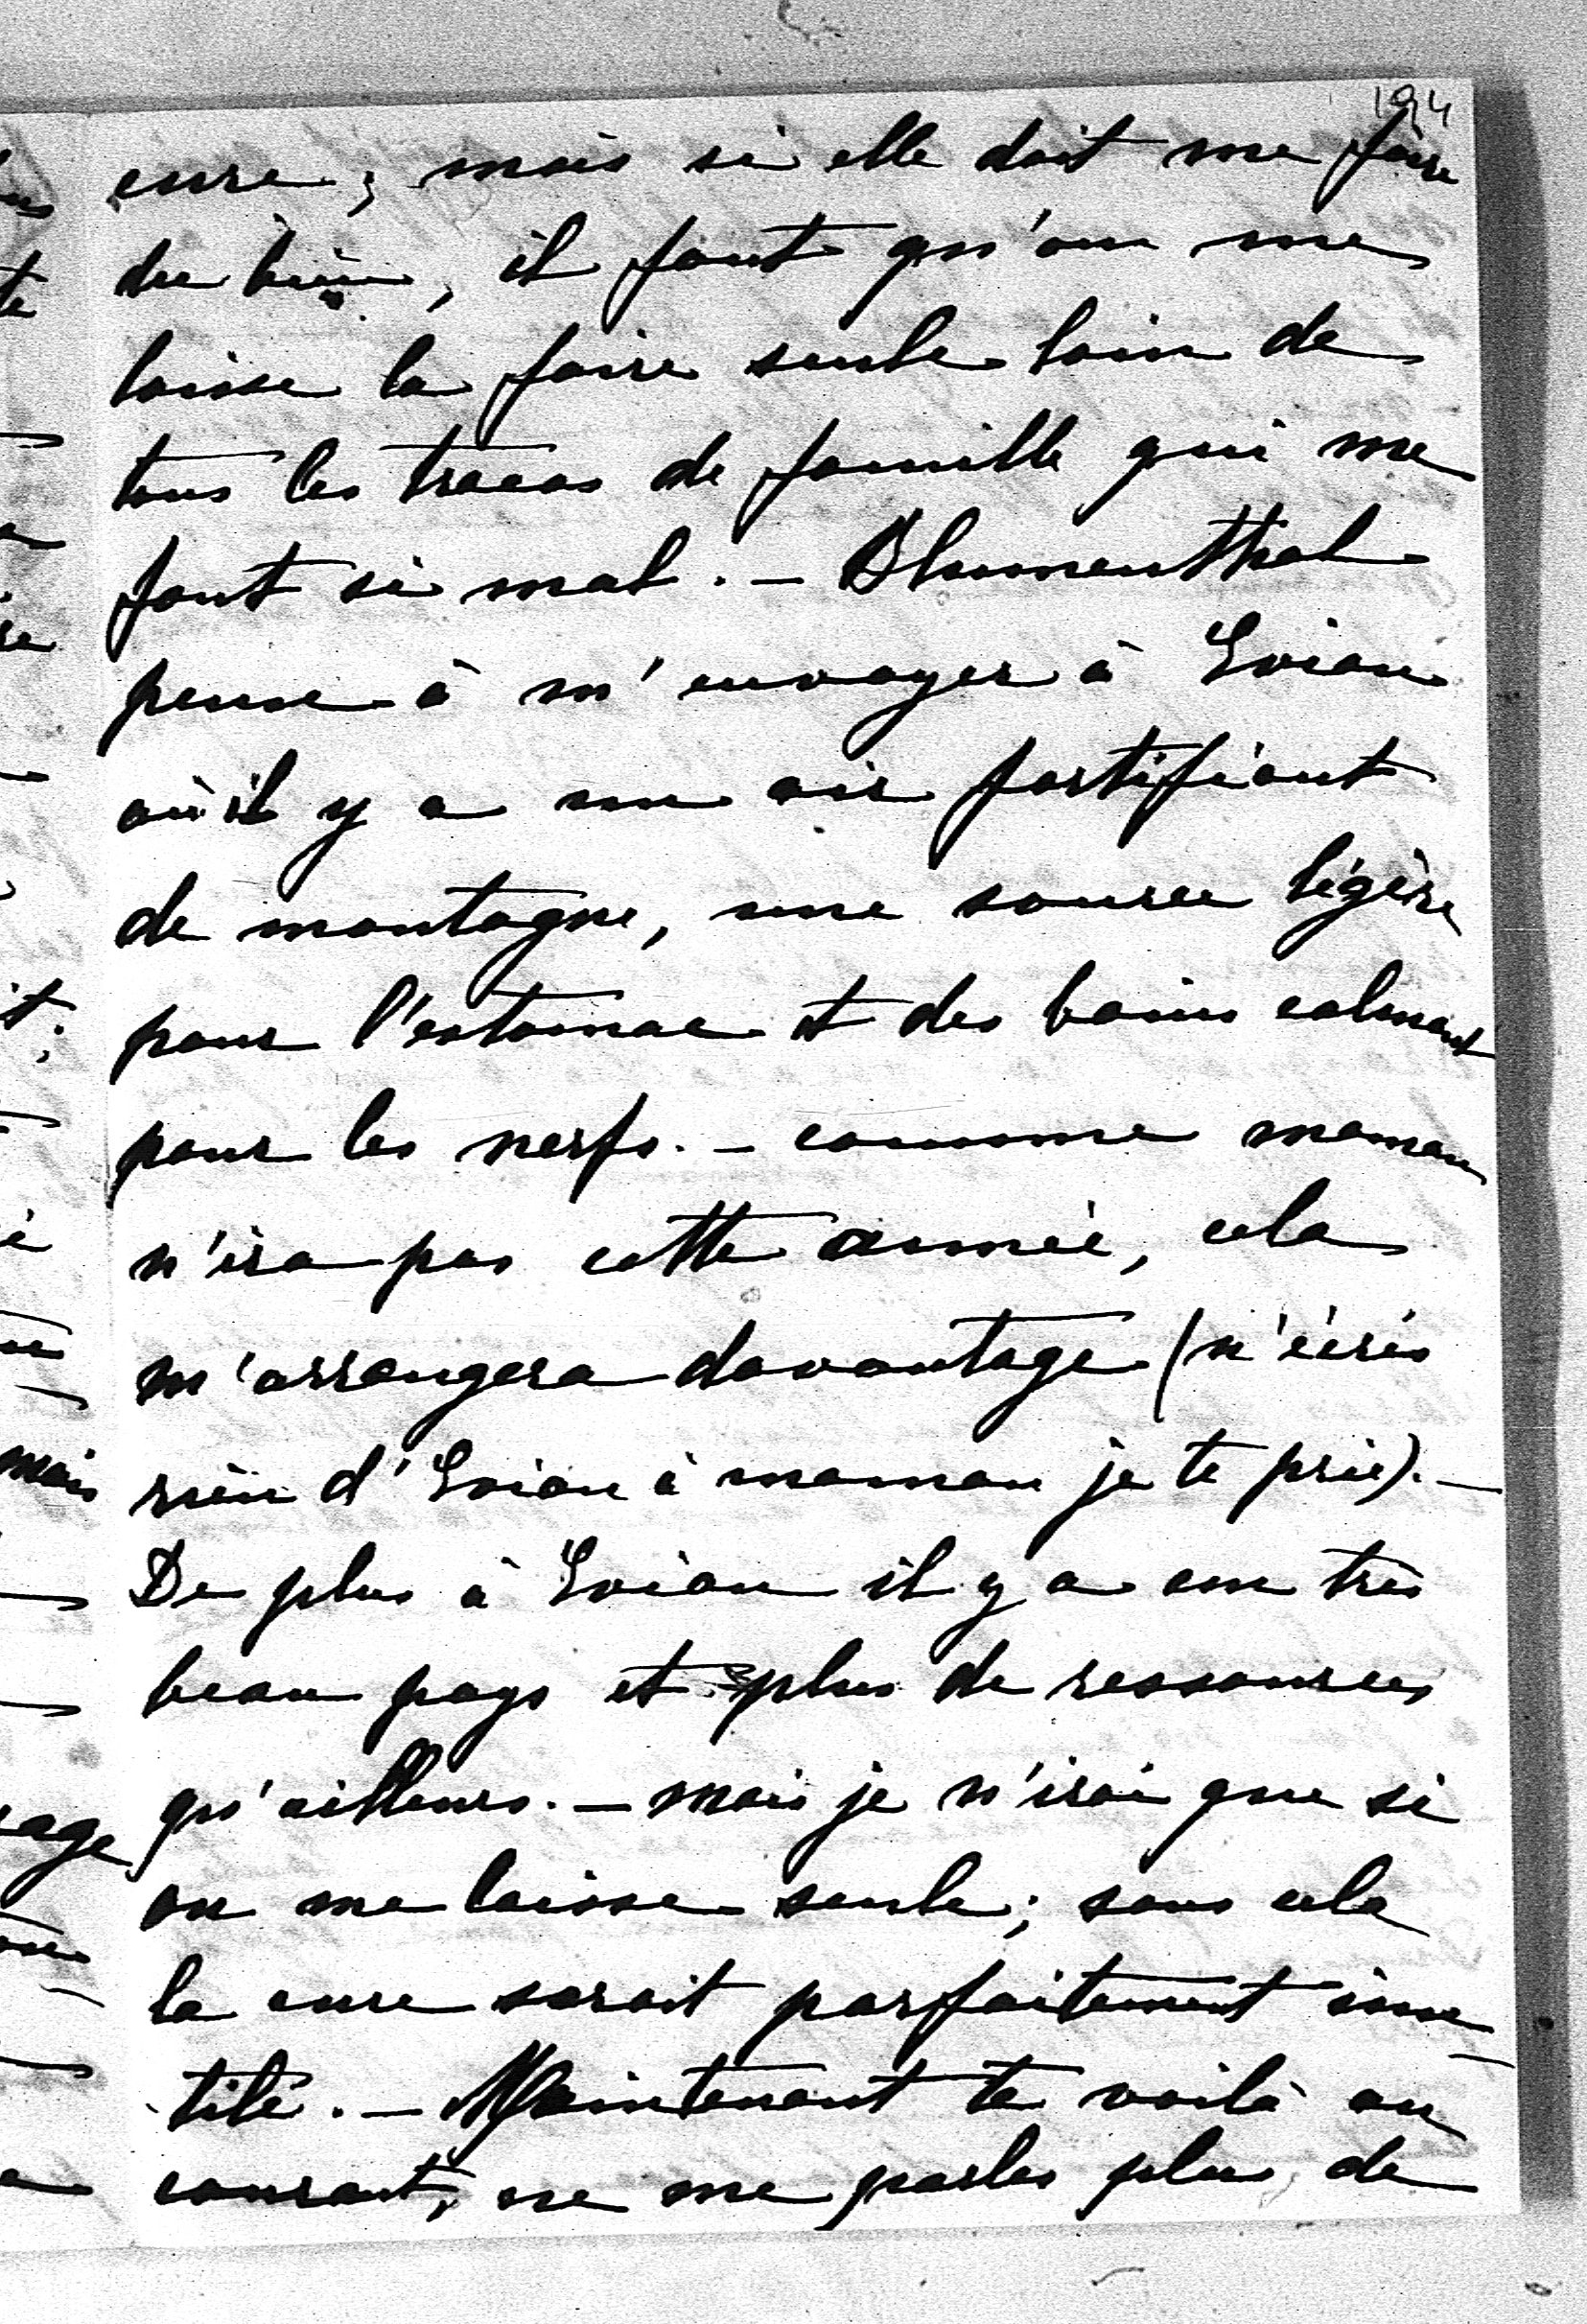 194
cure; mais si elle doit me faire
du bien, il faut qu'on me
laisse la faire seule loin de
tous les tracas de famille qui me
font si mal. — Blumenthal
pense à m'envoyer à Evian
où il y a un air fortifiant
de montagne, une source légère
pour l'estomac et des bains calmant
pour les nerfs. — comme maman
n'ira pas cette année, cela
m'arrangera davantage (n'écris
rien d'Evian à maman je te prie). —
De plus à Evian il y a un très
beau pays et plus de ressources
qu'ailleurs. — mais je n'irai que si
on me laisse seule; sans cela
la cure serait parfaitement inu-
tile. — Maintenant te voilà au
courant, ne me parles plus de